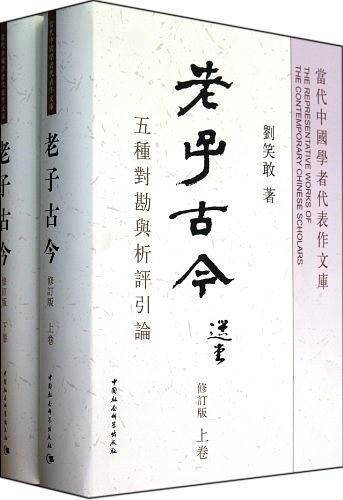 當代中國學者代表作文庫
THE REPRESENTATIVE WORKS OF
THE CONTEMPORARY CHINESE SCHOLARS
劉笑敢 著
老子古今
五種對勘與析評引論
選堂
修訂版 上卷
中国社会科学出版社
當代中國學者代表作文庫
老子古今
修訂版 上卷
中国社会科学出版社
老子古今
修訂版 下卷